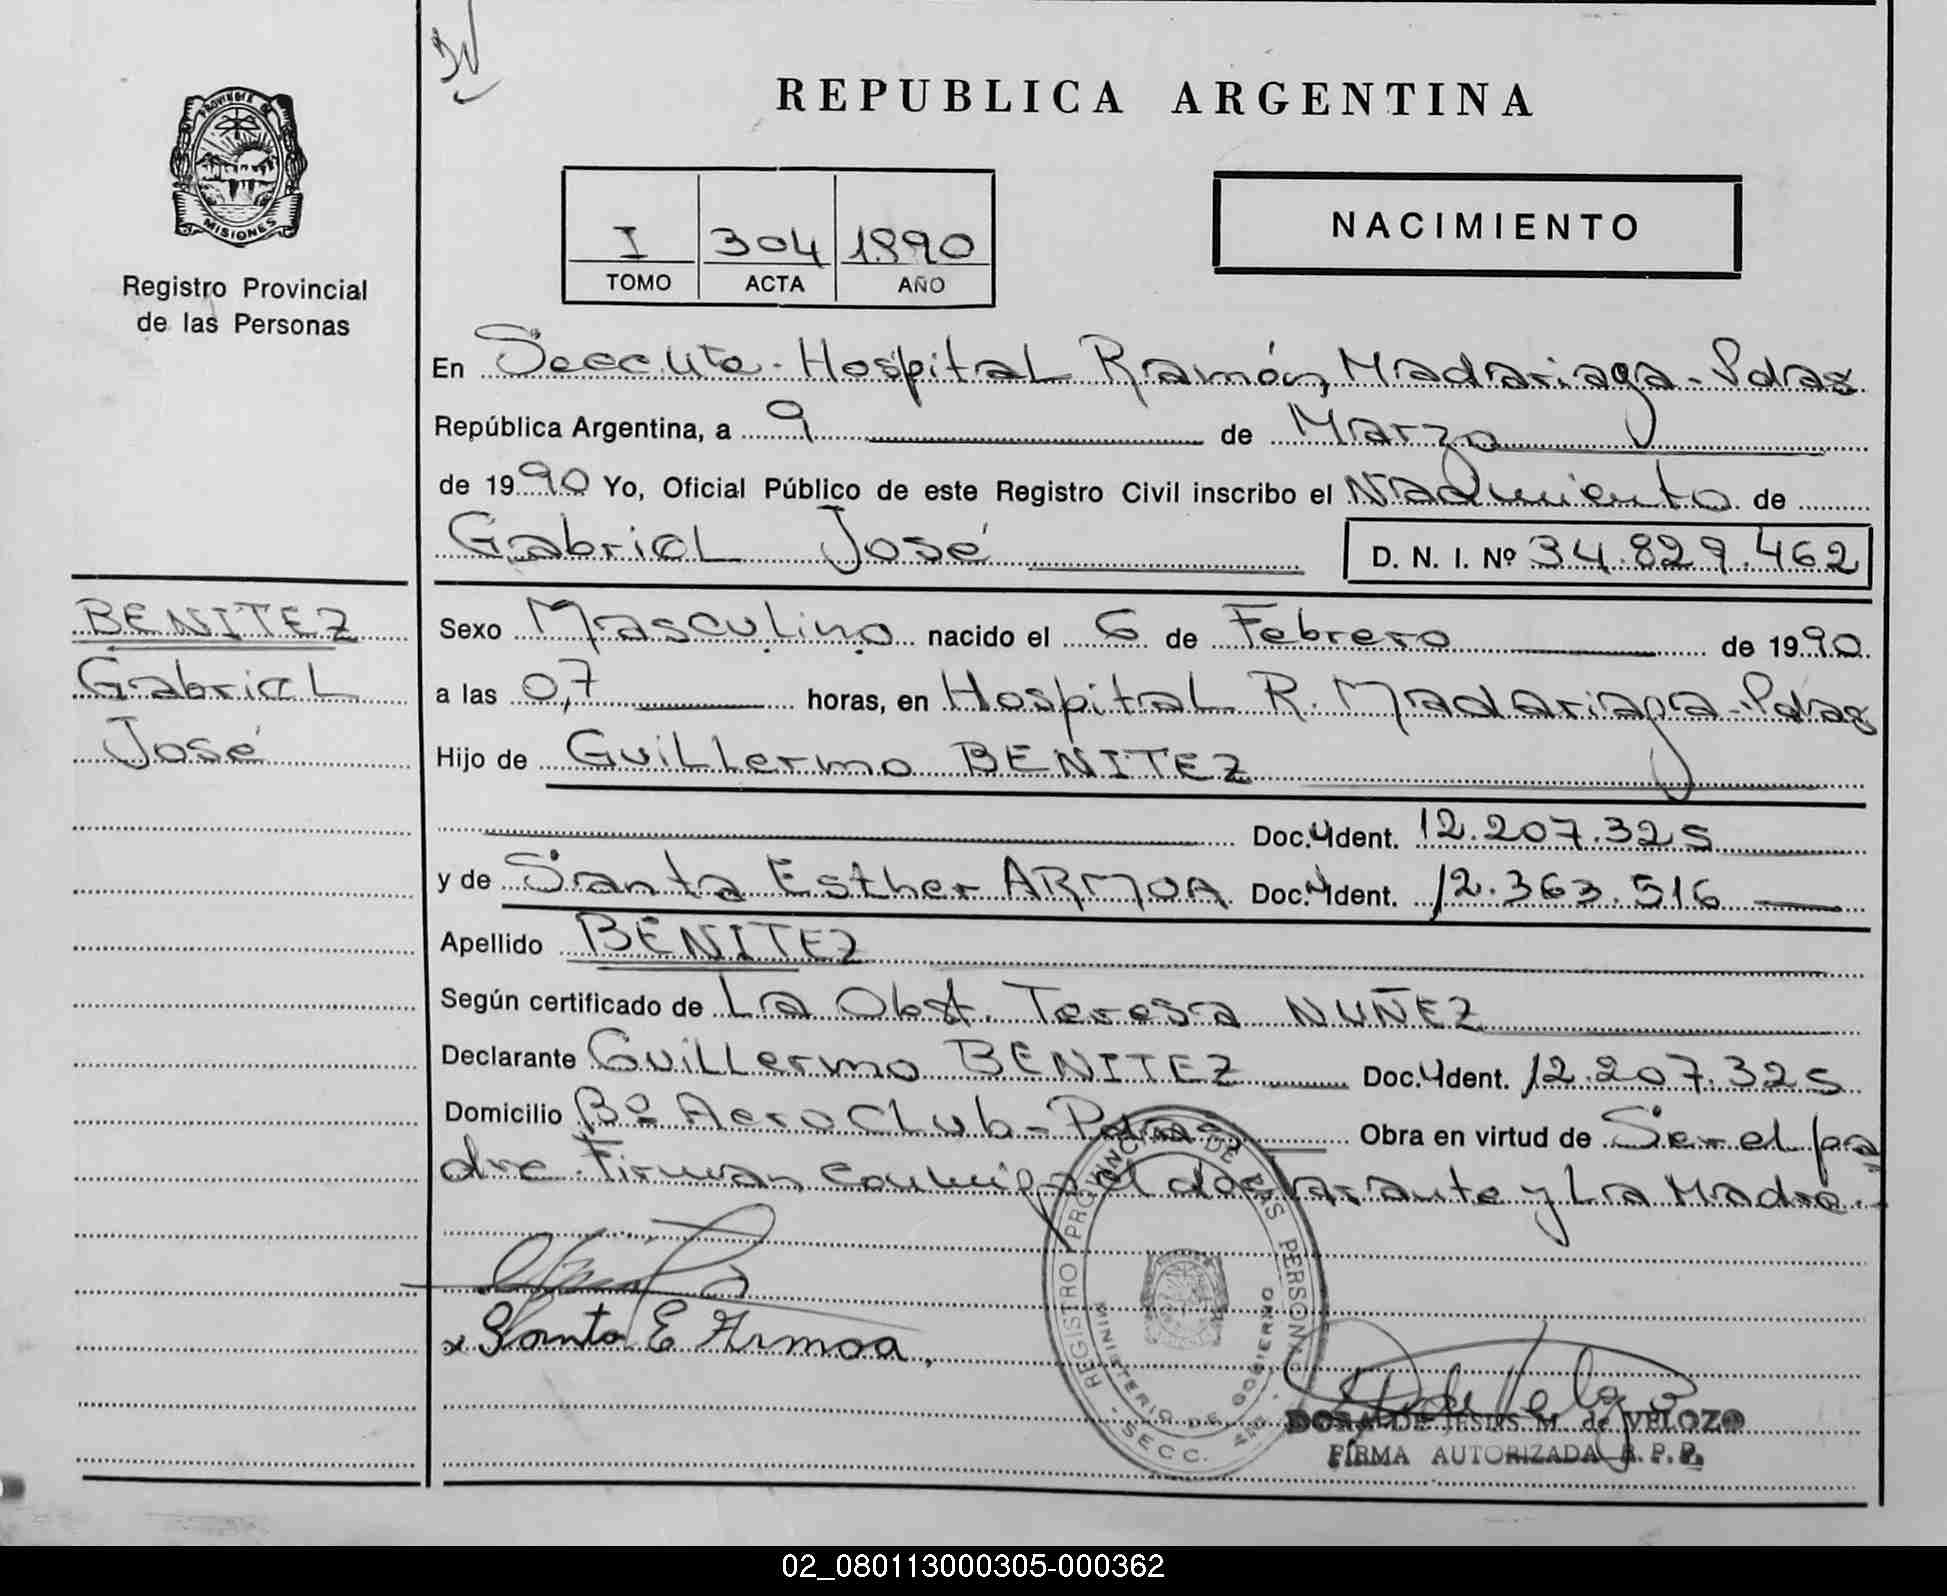 REPUBLICA ARGENTINA
PROVINCIA DE
MISIONES
Registro Provincial
de las Personas
I 304 1990
TOMO ACTA AÑO
NACIMIENTO
En Hospital Ramón Madariaga - Pdas
República Argentina, a 9 de Marzo
de 1990 Yo, Oficial Público de este Registro Civil inscribo el Nacimiento de
Gabriel José D. N. I. Nº 34.829.462
BENITEZ
Gabriel
José
Sexo Masculino nacido el 6 de Febrero de 1990
a las 0,7 horas, en Hospital R. Madariaga - Pdas
Hijo de Guillermo BENITEZ
Doc. Ident. 12.207.325
y de Santa Esther ARMOA Doc. Ident. 12.363.516
Apellido BENITEZ
Según certificado de La Obst. Teresa NUÑEZ
Declarante Guillermo BENITEZ Doc. Ident. 12.207.325
Domicilio Bº Aero Club - Pdas Obra en virtud de Ser el pa
dre. Firman conmigo el declarante y La Madre.
x Santa E Armoa,
REGISTRO PROVINCIAL DE LAS PERSONAS
MINISTERIO DE GOBIERNO
SECC.
DORA DE JESUS M. de VELOZO
FIRMA AUTORIZADA R. P. P.
02_080113000305-000362